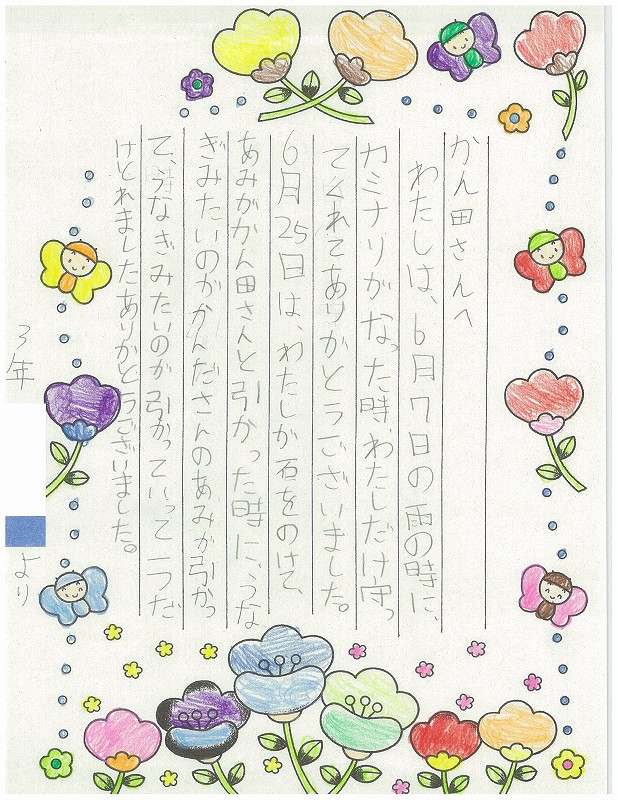 かん田さんへ
わたしは、6月7日の雨の時に、
カミナリがなった時、わたしだけ守っ
てくれてありがとうございました。
6月25日は、わたしが石をのけて、
あみがかん田さんと引かった時に、うな
ぎみたいのがかんださんのあみが引かっ
て、うなぎみたいのが引かっていって一つだ
けとれましたありがとうございました。
3年
より